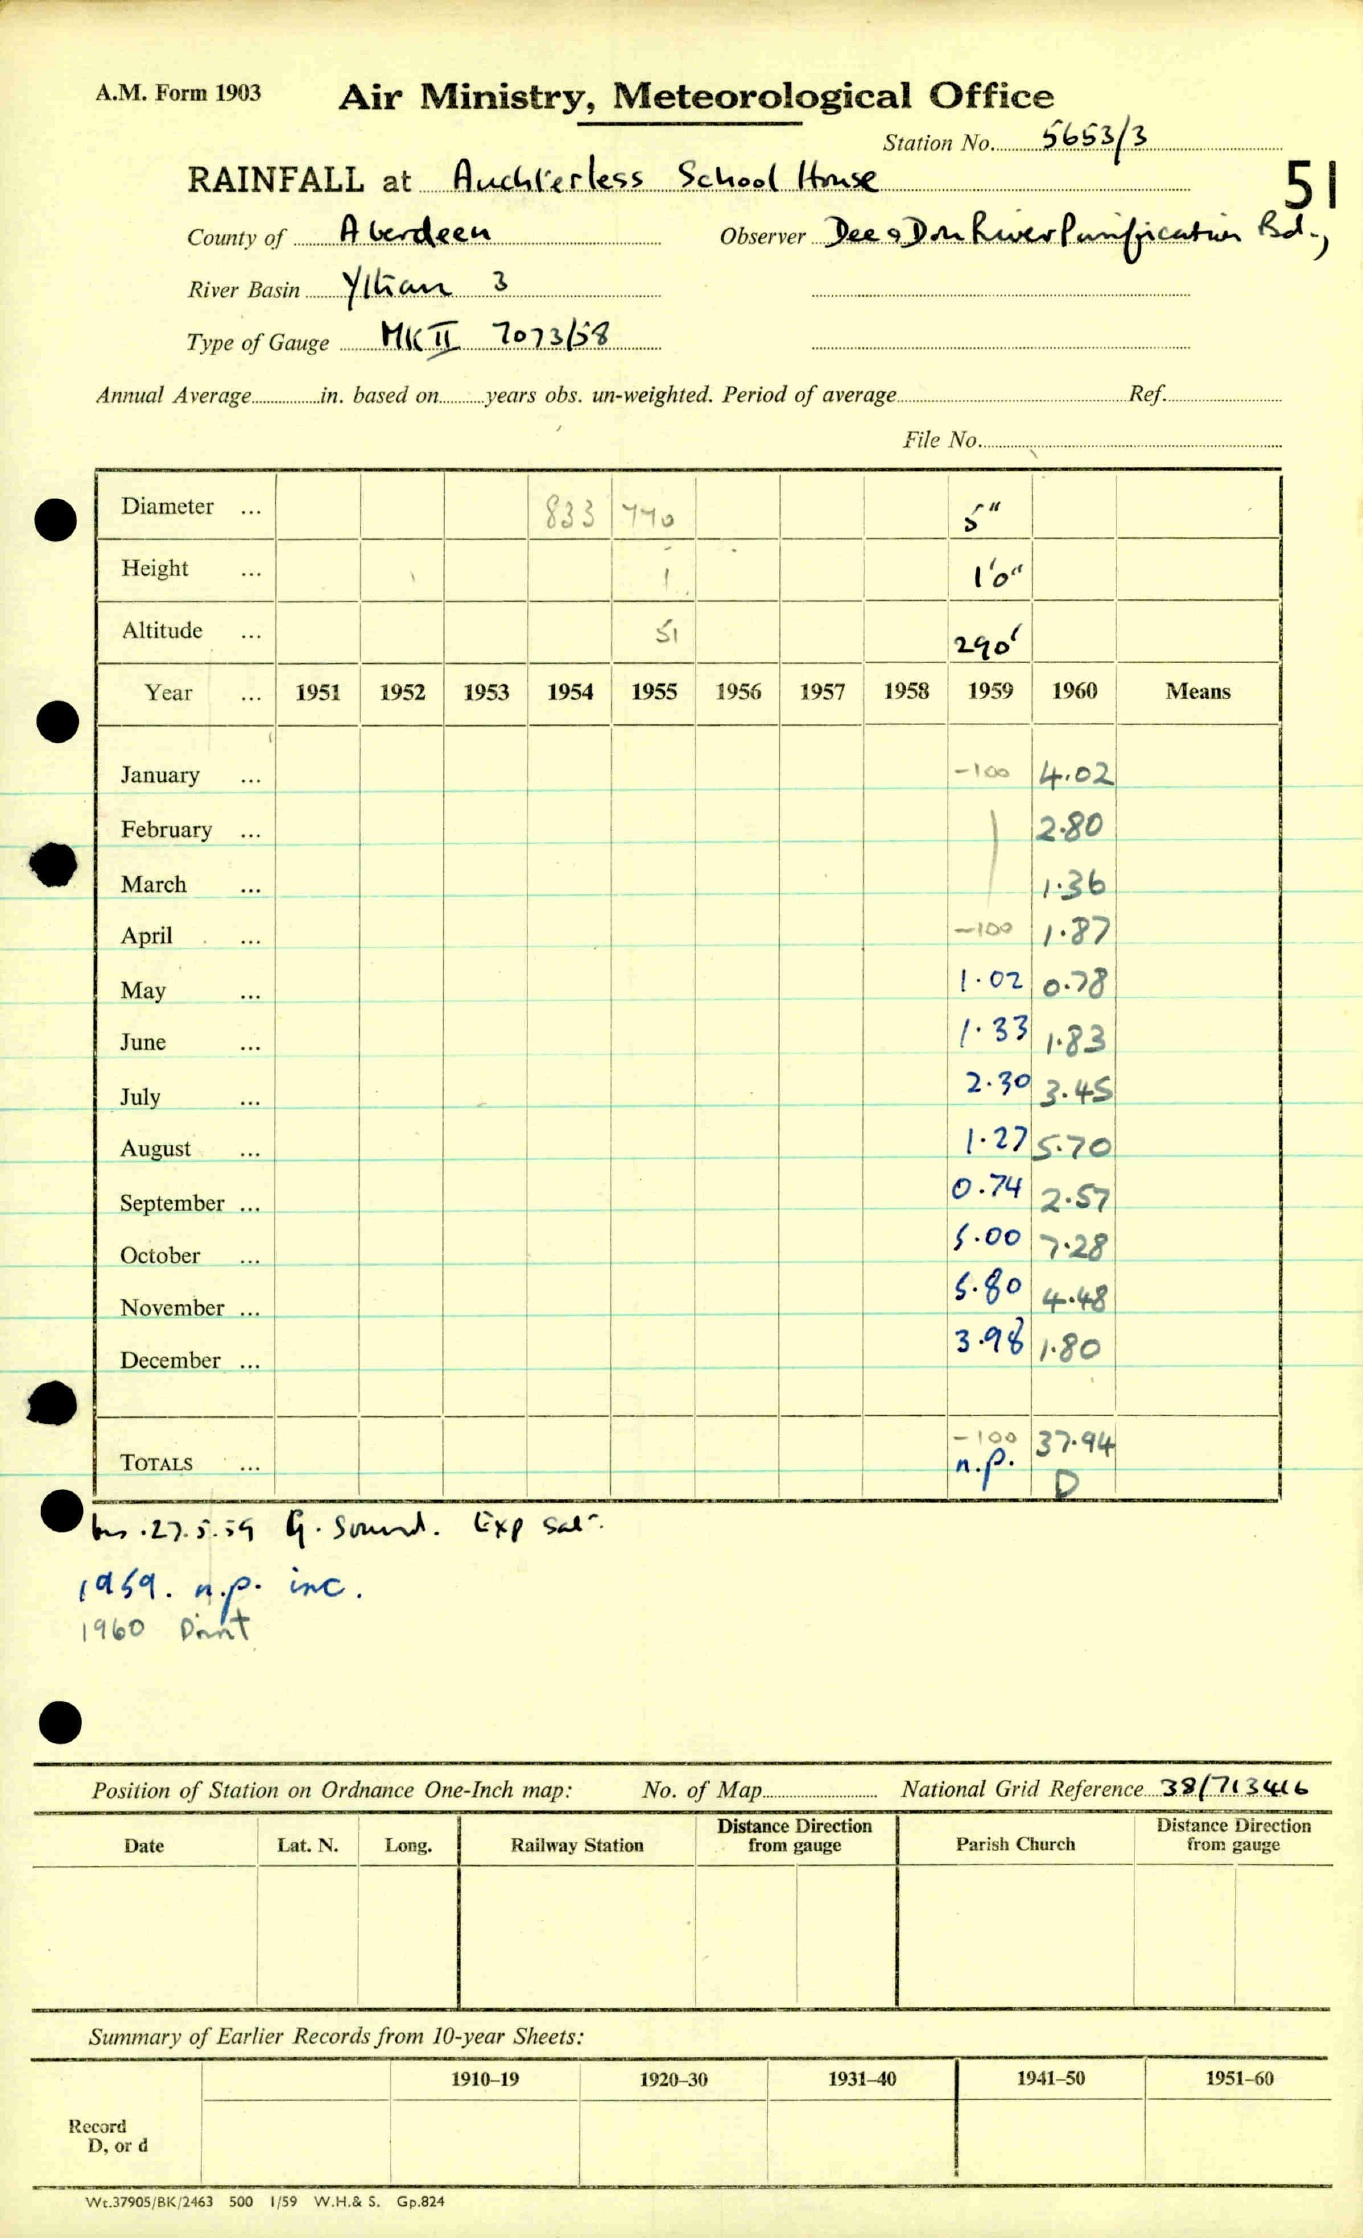 A.M. Form 1903
Air Ministry, Meteorological Office
Station No. 5653/3
51
RAINFALL at Auchterless School House
County of Aberdeen Observer Dee & Don River Purification Bd.,
River Basin Ythan 3
Type of Gauge MK II 7073/58
Annual Average in. based on years obs. un-weighted. Period of average Ref.
File No.
Diameter ... 833 770 5"
Height ... 1 1'0"
Altitude ... 51 290'
Year ... 1951 1952 1953 1954 1955 1956 1957 1958 1959 1960 Means
January ... -100 4.02
February ... 2.80
March ... 1.36
April ... -100 1.87
May ... 1.02 0.78
June ... 1.33 1.83
July ... 2.30 3.45
August ... 1.27 5.70
September ... 0.74 2.57
October ... 5.00 7.28
November ... 5.80 4.48
December ... 3.98 1.80
TOTALS ... -100 37.94
n.p. D
27.5.59 G. Sound. Exp Sat.
1959. n.p. inc.
1960 Print
Position of Station on Ordnance One-Inch map: No. of Map National Grid Reference 38/713416
Date Lat. N. Long. Railway Station Distance Direction from gauge Parish Church Distance Direction from gauge
Summary of Earlier Records from 10-year Sheets:
1910–19 1920–30 1931–40 1941–50 1951–60
Record
D, or d
Wt.37905/BK/2463 500 1/59 W.H.& S. Gp.824